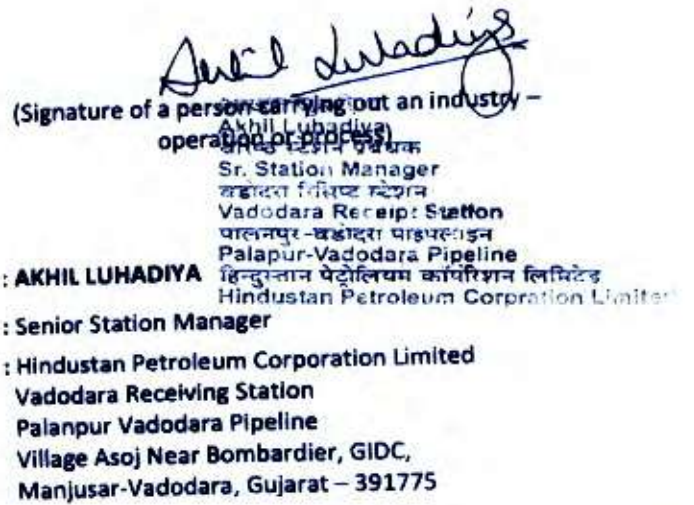 Akhil Luhadiya
(Signature of a person carrying out an industry –
operation or process)
Akhil Luhadiya
वरिष्ठ स्टेशन प्रबंधक
Sr. Station Manager
वडोदरा रिसिप्ट स्टेशन
Vadodara Receipt Station
पालनपुर-वडोदरा पाइपलाइन
Palapur-Vadodara Pipeline
हिन्दुस्तान पेट्रोलियम कॉर्पोरेशन लिमिटेड
Hindustan Petroleum Corpration Limited
: AKHIL LUHADIYA
: Senior Station Manager
: Hindustan Petroleum Corporation Limited
Vadodara Receiving Station
Palanpur Vadodara Pipeline
Village Asoj Near Bombardier, GIDC,
Manjusar-Vadodara, Gujarat – 391775